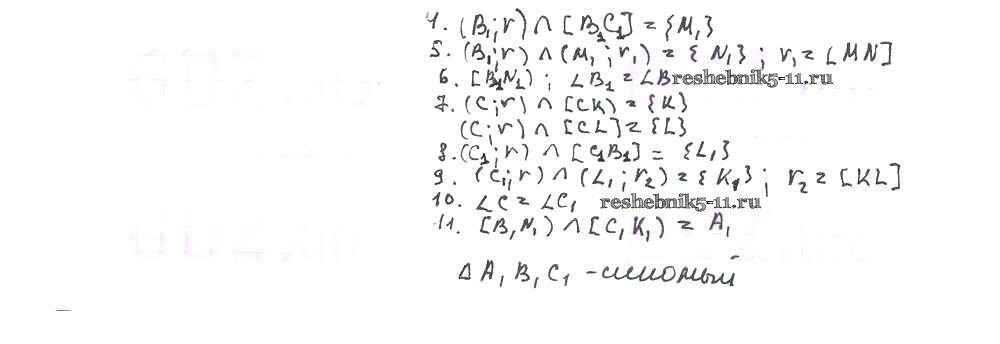 4. (B₁; r) ∩ [B₁C₁] = {M₁}
5. (B₁; r) ∩ (M₁; r₁) = {N₁}; r₁ = [MN]
6. [B₁N₁); ∠B₁ = ∠B reshebnik5-11.ru
7. (C; r) ∩ [CK) = {K}
(C; r) ∩ [CL] = {L}
8. (C₁; r) ∩ [C₁B₁] = {L₁}
9. (C₁; r) ∩ (L₁; r₂) = {K₁}; r₂ = [KL]
10. ∠C = ∠C₁ reshebnik5-11.ru
11. [B₁N₁) ∩ [C₁K₁) = A₁
Δ A₁B₁C₁ - искомый